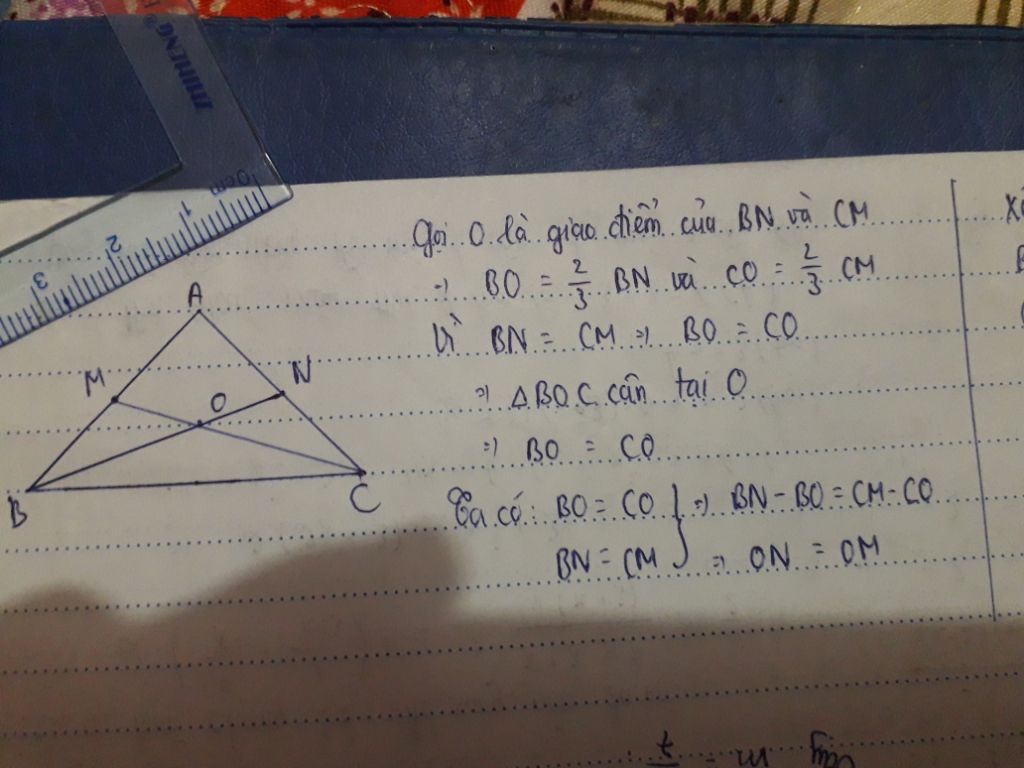 MIHENG®
0cm 1 2 3
Gọi O là giao điểm của BN và CM
=> BO = 2/3 BN và CO = 2/3 CM
Vì BN = CM => BO = CO
=> △BOC cân tại O
=> BO = CO
Ta có: BO = CO } => BN - BO = CM - CO
BN = CM => ON = OM
A
M
N
O
B
C